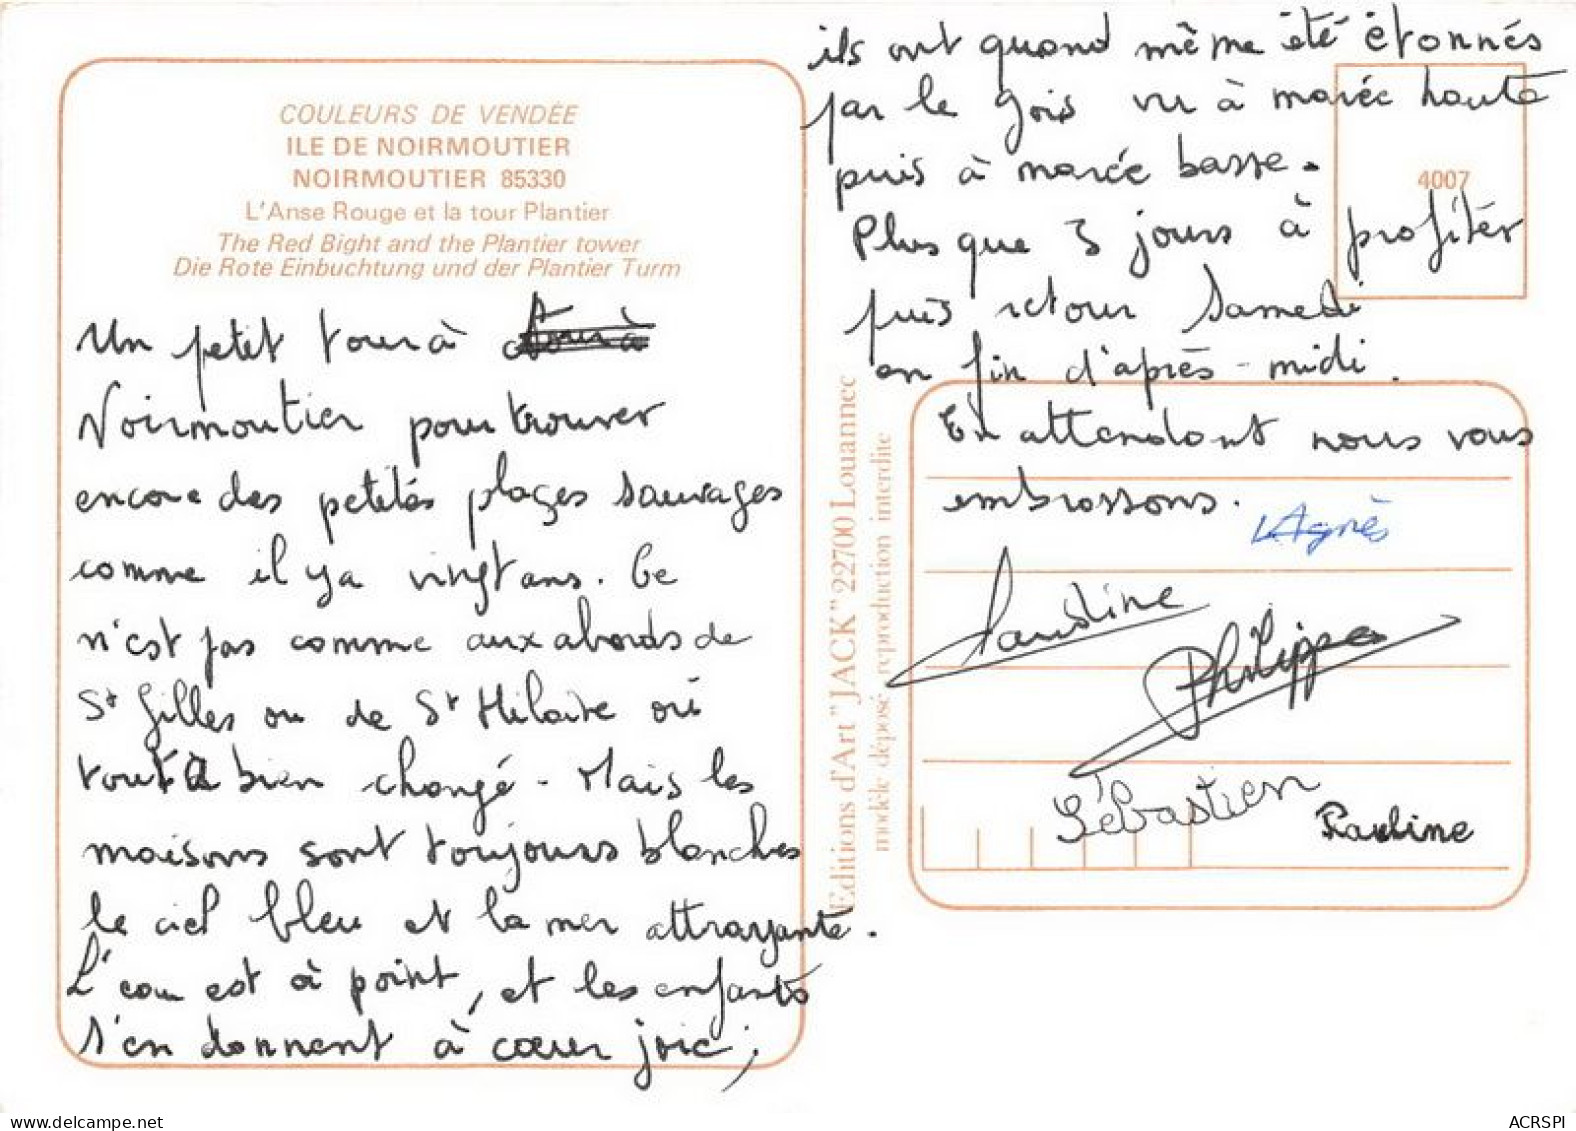 COULEURS DE VENDÉE
ILE DE NOIRMOUTIER
NOIRMOUTIER 85330
L'Anse Rouge et la tour Plantier
The Red Bight and the Plantier tower
Die Rote Einbuchtung und der Plantier Turm
Un petit tour à
Noirmoutier pour trouver
encore des petites plages sauvages
comme il y a vingt ans. Ce
n'est pas comme aux abords de
St Gilles ou de St Hilaire où
tout a bien changé - Mais les
maisons sont toujours blanches
le ciel bleu et la mer attrayante.
L'eau est à point, et les enfants
s'en donnent à cœur joie ;
ils ont quand même été étonnés
par le Gois vu à marée haute
puis à marée basse.
Plus que 3 jours à profiter
puis retour Samedi
en fin d'après-midi.
En attendant nous vous
embrassons.
Agnès
Faustine
Philippe
Sébastien
Pauline
4007
Editions d'Art "JACK" 22700 Louannec
modèle déposé reproduction interdite
delcampe.net
ACRSPI